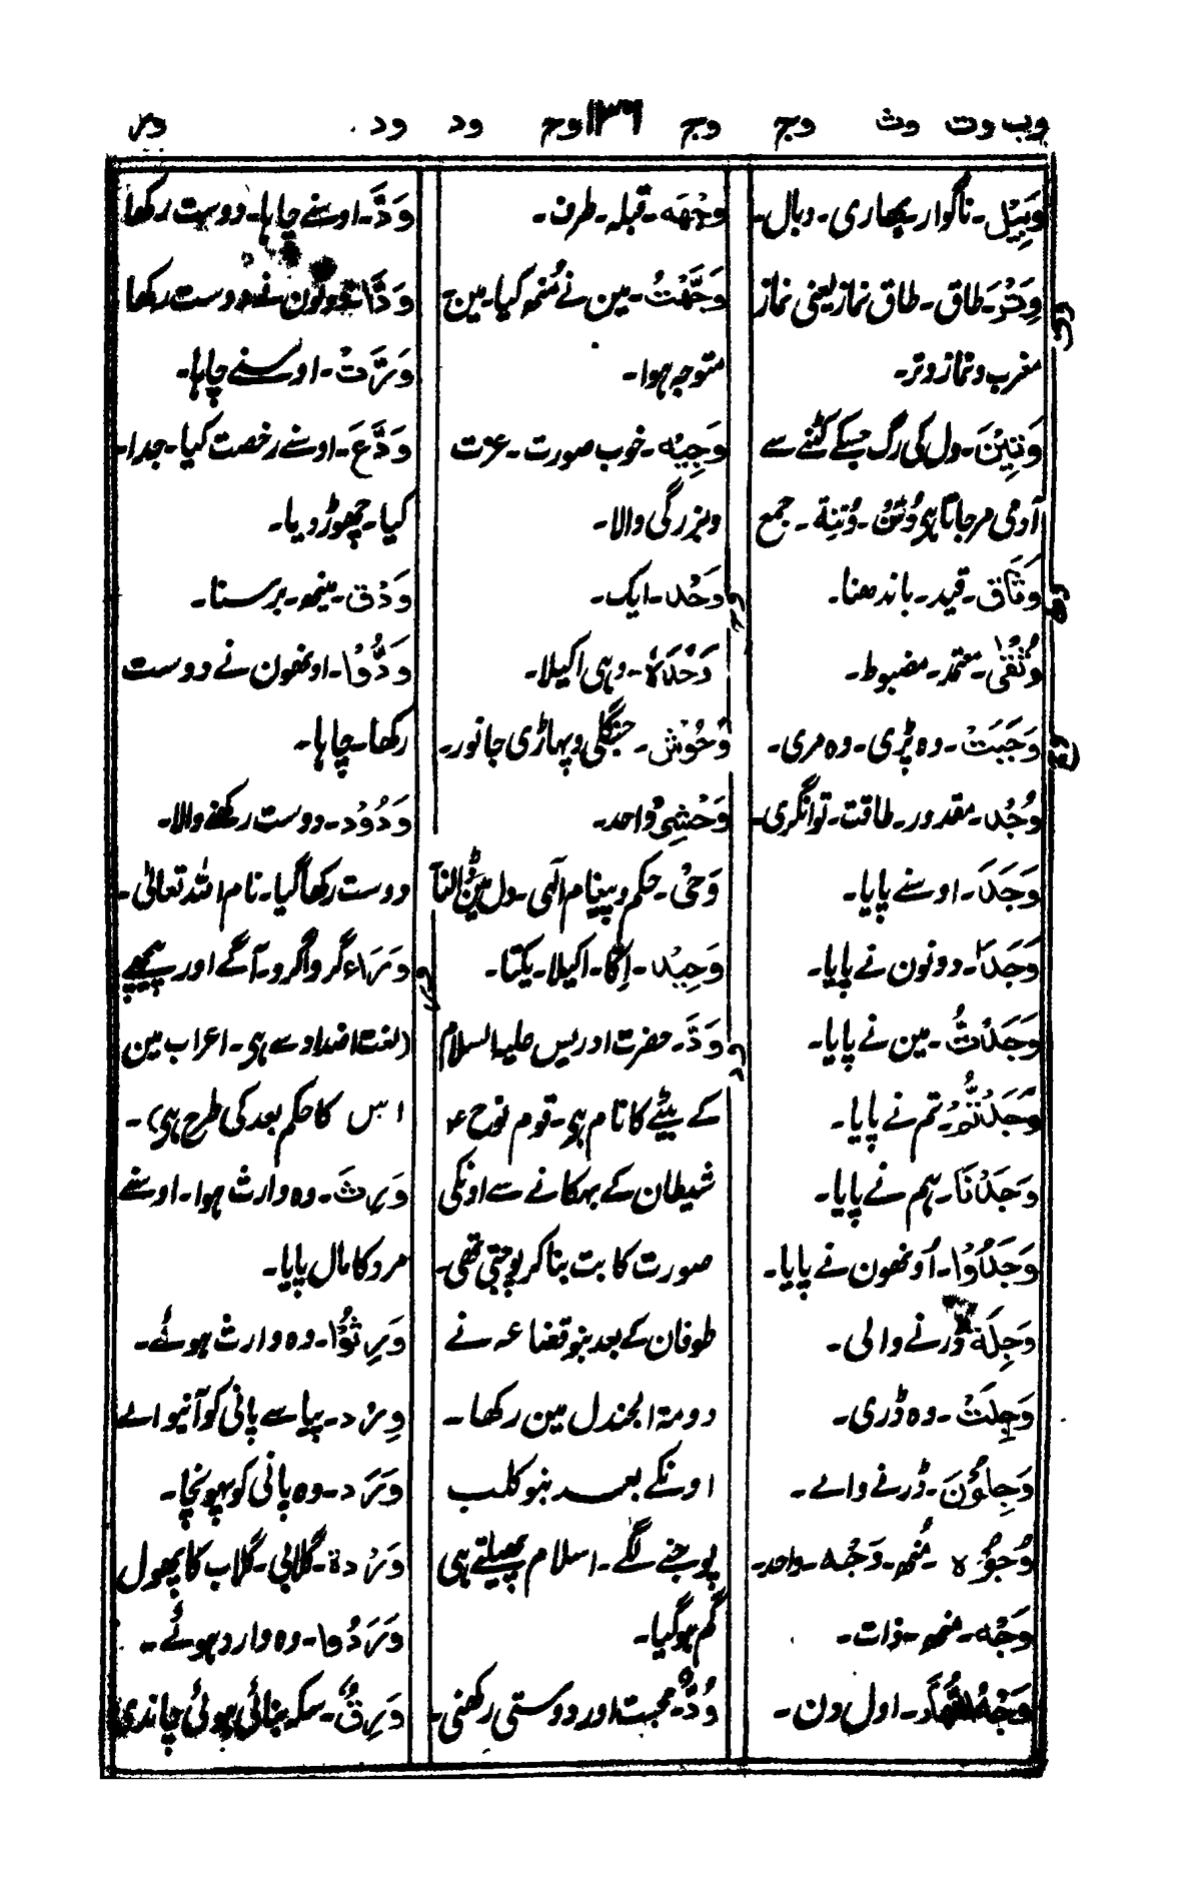 وب وت وث وج وج ۱۳۶ وح ود ود ور
وَبِیْل۔ ناگوار بھاری۔ وبال۔
وِتْر۔ طاق۔ طاق نماز یعنی نماز
مغرب و نماز وتر۔
وَتِیْنَ۔ دل کی رگ جسکے کٹنے سے
آدمی مرجاتا ہی وُتُنْ۔ وُتِنة۔ جمع
وَثَاق۔ قید۔ باندھنا۔
وُثْقٰی۔ معتمد۔ مضبوط۔
وَجَبَتْ۔ وہ پڑی۔ وہ مری۔
وُجْد۔ مقدور۔ طاقت۔ توانگری۔
وَجَدَ۔ اوسنے پایا۔
وَجَدَا۔ دونون نے پایا۔
وَجَدْتُّ۔ مین نے پایا۔
وَجَدْتُّمْ۔ تم نے پایا۔
وَجَدْنَا۔ ہم نے پایا۔
وَجَدُوْا۔ اُونھون نے پایا۔
وَجِلَة ڈرنے والی۔
وَجِلَتْ۔ وہ ڈری۔
وَجِلُوْنَ۔ ڈرنے والے۔
وُجُوْہ۔ مُنھ۔ وَجْہ۔ واحد۔
وَجْه۔ منھ۔ ذات۔
وَجْهُ النَّهَار۔ اول دن۔
وِجْهَه۔ قبلہ۔ طرف۔
وَجَّهْتُ۔ مین نے مُنھ کیا۔ مین
متوجہ ہوا۔
وَجِیْه۔ خوب صورت۔ عزت
وبزرگی والا۔
وَحْد۔ ایک۔
وَحْدَہٗ۔ وہی اکیلا۔
وُحُوْش۔ جنگلی وپہاڑی جانور۔
وَحْشِیْ واحد۔
وَحْی۔ حکم وپیغام الٰہی۔ دل مین ڈالنا
وَحِیْد۔ اِکّا۔ اکیلا۔ یکتا۔
وَدّ۔ حضرت ادریس علیہ السلام
کے بیٹے کا نام ہی۔ قوم نوح ؑ
شیطان کے بہکانے سے اونکی
صورت کا بت بنا کر پوجتی تھی۔
طوفان کے بعد بنو قضاعہ نے
دومۃ الجندل مین رکھا۔
اونکے بعد بنو کلب
پوجنے لگے۔ اسلام پھیلتے ہی
گم ہو گیا۔
وُدّ۔ محبت اور دوستی رکھنی۔
وَدَّ۔ اوسنے چاہا۔ دوست رکھا
وَدَّا دونون نے دوست رکھا
وَدَّتْ۔ اوسنے چاہا۔
وَدَّعَ۔ اوسنے رخصت کیا۔ جدا
کیا۔ چھوڑ دیا۔
وَدْق۔ مینھ۔ برسنا۔
وَدُّوْا۔ اونھون نے دوست
رکھا۔ چاہا۔
وَدُوْد۔ دوست رکھنے والا۔
دوست رکھا گیا۔ نام اللہ تعالیٰ۔
وَرَاء گرواگرد۔ آگے اور پیچھے
(لغت اضداد سے ہی۔ اعراب مین
اس کا حکم بعد کی طرح ہی)۔
وَرِثَ۔ وہ وارث ہوا۔ اوسنے
مردکا مال پایا۔
وَرِثُوْا۔ وہ وارث ہوئے۔
وِرْد۔ پیاسے پانی کو آنیوالے
وَرَد۔ وہ پانی کو پہونچا۔
وَرْدة۔ گلابی۔ گلاب کا پھول
وَرَدُوا۔ وہ وارد ہوئے۔
وَرِقُ۔ سکہ بنائی ہوئی چاندی